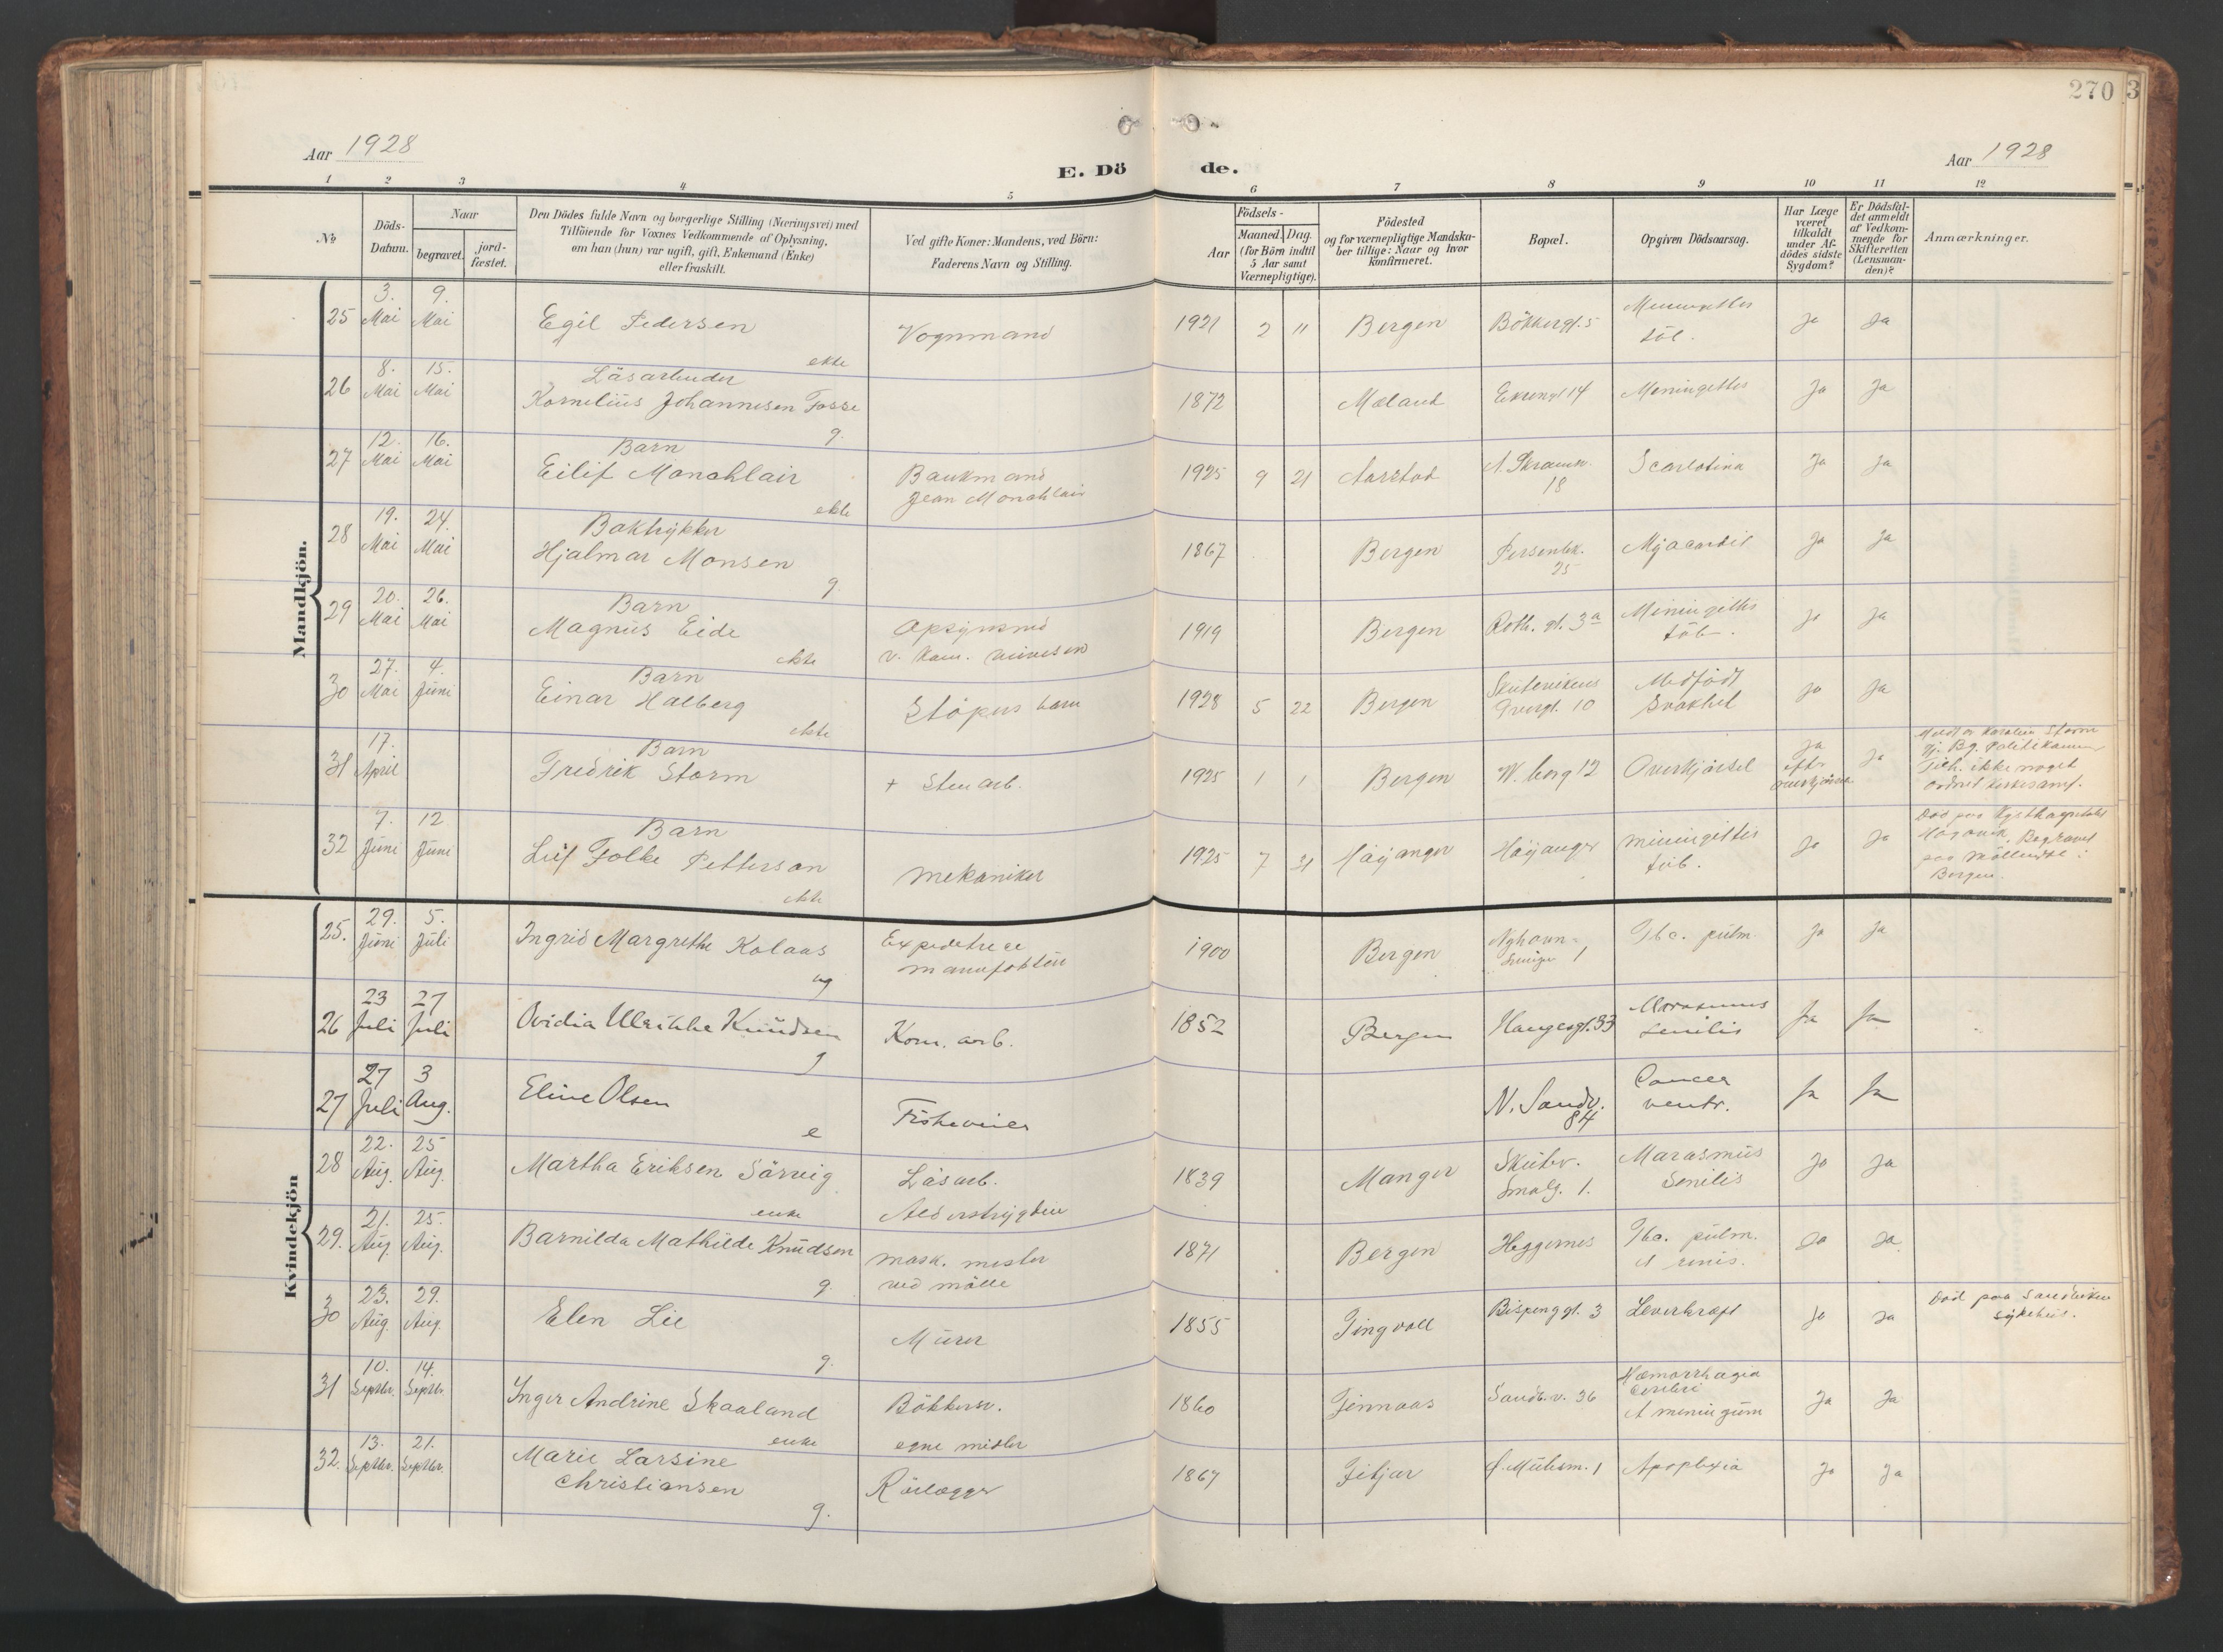 270
3
Aar 1928
E. Dö
de.
Aar 1928
1 2 3 4 5 6 7 8 9 10 11 12
No
Döds-
Datum.
Naar
begravet.
jord-
fæstet.
Den Dödes fulde Navn og borgerlige Stilling (Næringsvei) med
Tilföiende for Voxnes Vedkommende af Oplysning,
om han (hun) var ugift, gift, Enkemand (Enke)
eller fraskilt.
Ved gifte Koner: Mandens, ved Börn:
Faderens Navn og Stilling.
Födsels-
Aar
Maaned. Dag.
(for Börn indtil
5 Aar samt
Værnepligtige).
Födested
og for værnepligtige Mandska-
ber tillige: Naar og hvor
konfirmeret.
Bopæl.
Opgiven Dödsaarsag.
Har Læge
været
tilkaldt
under Af-
dödes sidste
Sygdom?
Er Dödsfal-
det anmeldt
af Vedkom-
mende for
Skifteretten
(Lensman-
den)?
Anmærkninger.
Mandkjön.
25 3. Mai 9. Mai Egil Pedersen ekte Vognmand 1921 2 11 Bergen Bökkergt. 5 Ja Ja
26 8. Mai 15. Mai Kornelius Johannesen Fosse g. 1872 Mæland 14 Meningitis Ja Ja
27 12. Mai 16. Mai Barn
Eilif Monahlair ekte Jean Monahlair 1925 9 21 Aarstad 18 Scarlatina Ja Ja
28 19. Mai 24. Mai Boktrykker
Hjalmar Monsen g. 1867 Bergen 25 Ja Ja
29 20. Mai 26. Mai Barn
Magnus Eide ekte 1919 Bergen Roth. gt. 3a Meningitis tub. Ja Ja
30 27. Mai 4. Juni Barn
Einar Halberg ekte 1928 5 22 Bergen 10 Medfödt Svakhet Ja Ja
31 17. April Barn
Fredrik Storm + Stenarb. 1925 1 1 Bergen W. borg 12 Overkjörsel Ja efter overkjörsel Ja
32 7. Juni 12 Juni Barn
Leif Folke Petterson ekte mekaniker 1925 7 31 Höyanger Höyanger meningitis tub. Ja Ja Död paa Kysthospitalet
Begravet
paa Möllendal i
Bergen.
Kvindekjön
25. 29. Juni 5. Juli Ingrid Margrethe Kolaas ug Expeditrice
manufaktur 1900 Bergen 1 Tbc. pulm. Ja Ja
26 23 Juli 27 Juli Ovidia Ulrikke Knudsen g Kom. arb. 1852 Bergen Haugesgt. 33 Marasmus
senilis Ja Ja
27 27 Juli 3 Aug. Eline Olsen e N. Sandv.
84 Cancer
ventr. Ja Ja
28 22. Aug. 25 Aug. Martha Eriksen Sörvig enke Lösarb.
Alderstrygden 1839 Manger Skutev.
Smalg. 1. Marasmus
Senilis Ja Ja
29. 21. Aug. 25. Aug. Barnilda Mathilde Knudsen g. mask. mester
ved mölle 1871 Bergen Heggernes Tbc. pulm.
et renis. Ja Ja
30 23. Aug. 29. Aug. Elen Lie g. Murer 1855 Tingvoll Bispenggt. 3 Leverkræft Ja Ja Död paa Sandviken
sykehus.
31 10. Septbr. 14. Septbr. Inger Andrine Skaaland enke Bökkersv.
egne midler 1860 Finnaas Sandv. v. 36 Hæmorrhagia
cerebri
et meningum Ja Ja
32. 13. Septbr. 21. Septbr. Marie Larsine
Christiansen g. Rörlægger 1867 Fitjar 1 Apoplexia Ja Ja